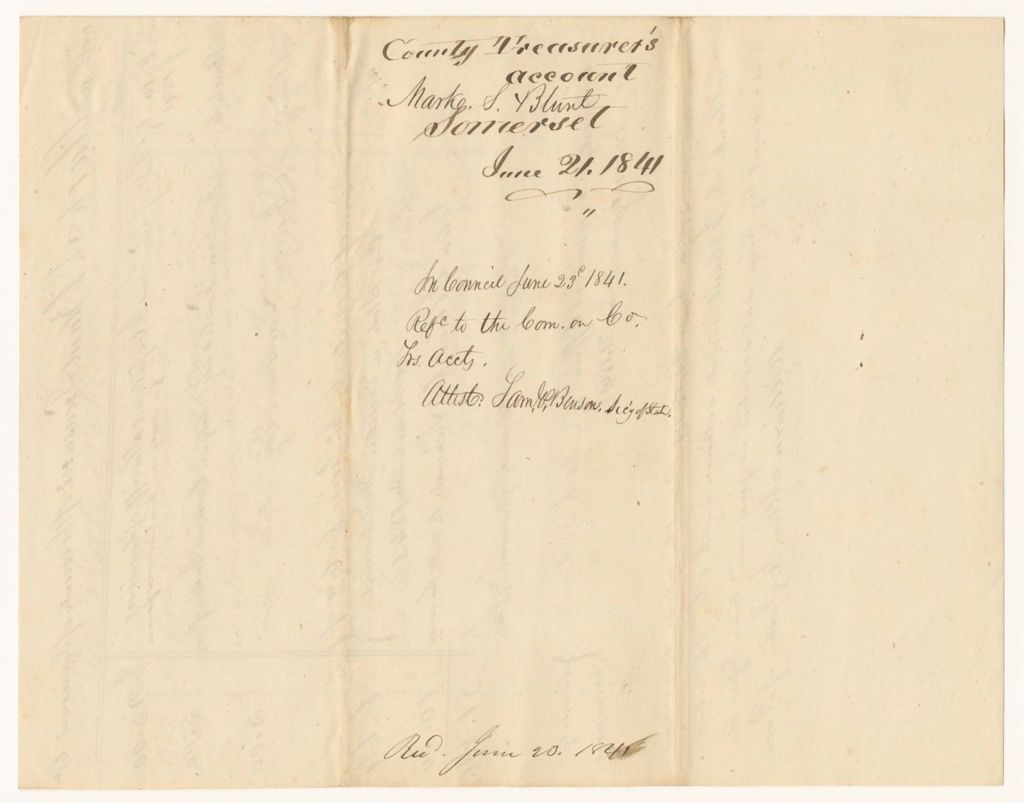 County Treasurer's
account
Mark S. Blunt
Somerset
June 21. 1841
"
In Council June 23d 1841.
Refd to the Com. on Co.
Trs. Accts.
Attest: Saml. P. Benson, Sec'y of State.
Recd. June 23. 1841